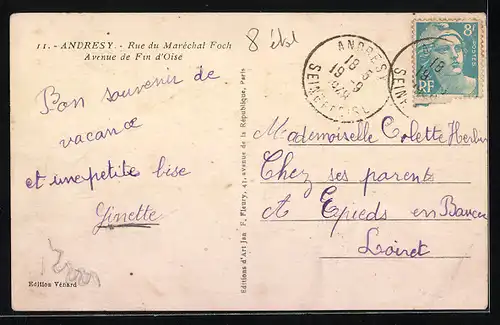 11. - ANDRESY. - Rue du Maréchal Foch
Avenue de Fin d'Oise
Bon souvenir de
vacance
et une petite bise
Ginette
Edition Vénard
Editions d'Art Jan F. Fleury, 41, avenue de la République, Paris
ANDRESY
18
19
SEINE-ET-OISE
8F
POSTES
RF
Mademoiselle Colette
Chez ses parents
A Epieds en Beauce
Loiret